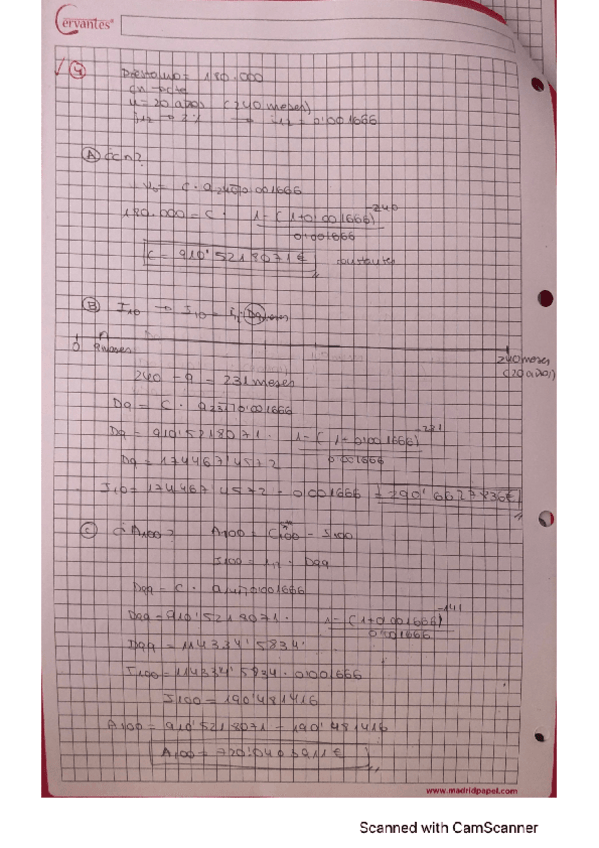 Cervantes®
4) Préstamo = 180.000
cn → cte
n = 20 años (240 meses)
i12 → 2% → i12 = 0'001666
A) ¿Cn?
V0 = C · a240⅂0'001666
180.000 = C · 1 - (1+0'001666)^-240 / 0'001666
C = 910'5218071 € constantes
B) I10 → I10 = i12 · D9
0 9 meses 240 meses
(20 años)
240 - 9 = 231 meses
D9 = C · a231⅂0'001666
D9 = 910'5218071 · 1 - (1+0'001666)^-231 / 0'001666
D9 = 174467'4572
I10 = 174467'4572 · 0'001666 = 290'6627836 €
C) ¿A100? A100 = C100 - I100
I100 = i12 · D99
D99 = C · a141⅂0'001666
D99 = 910'5218071 · 1 - (1+0'001666)^-141 / 0'001666
D99 = 114334'5834
I100 = 114334'5834 · 0'001666
I100 = 190'481416
A100 = 910'5218071 - 190'481416
A100 = 720'0403911 €
www.madridpapel.com
Scanned with CamScanner